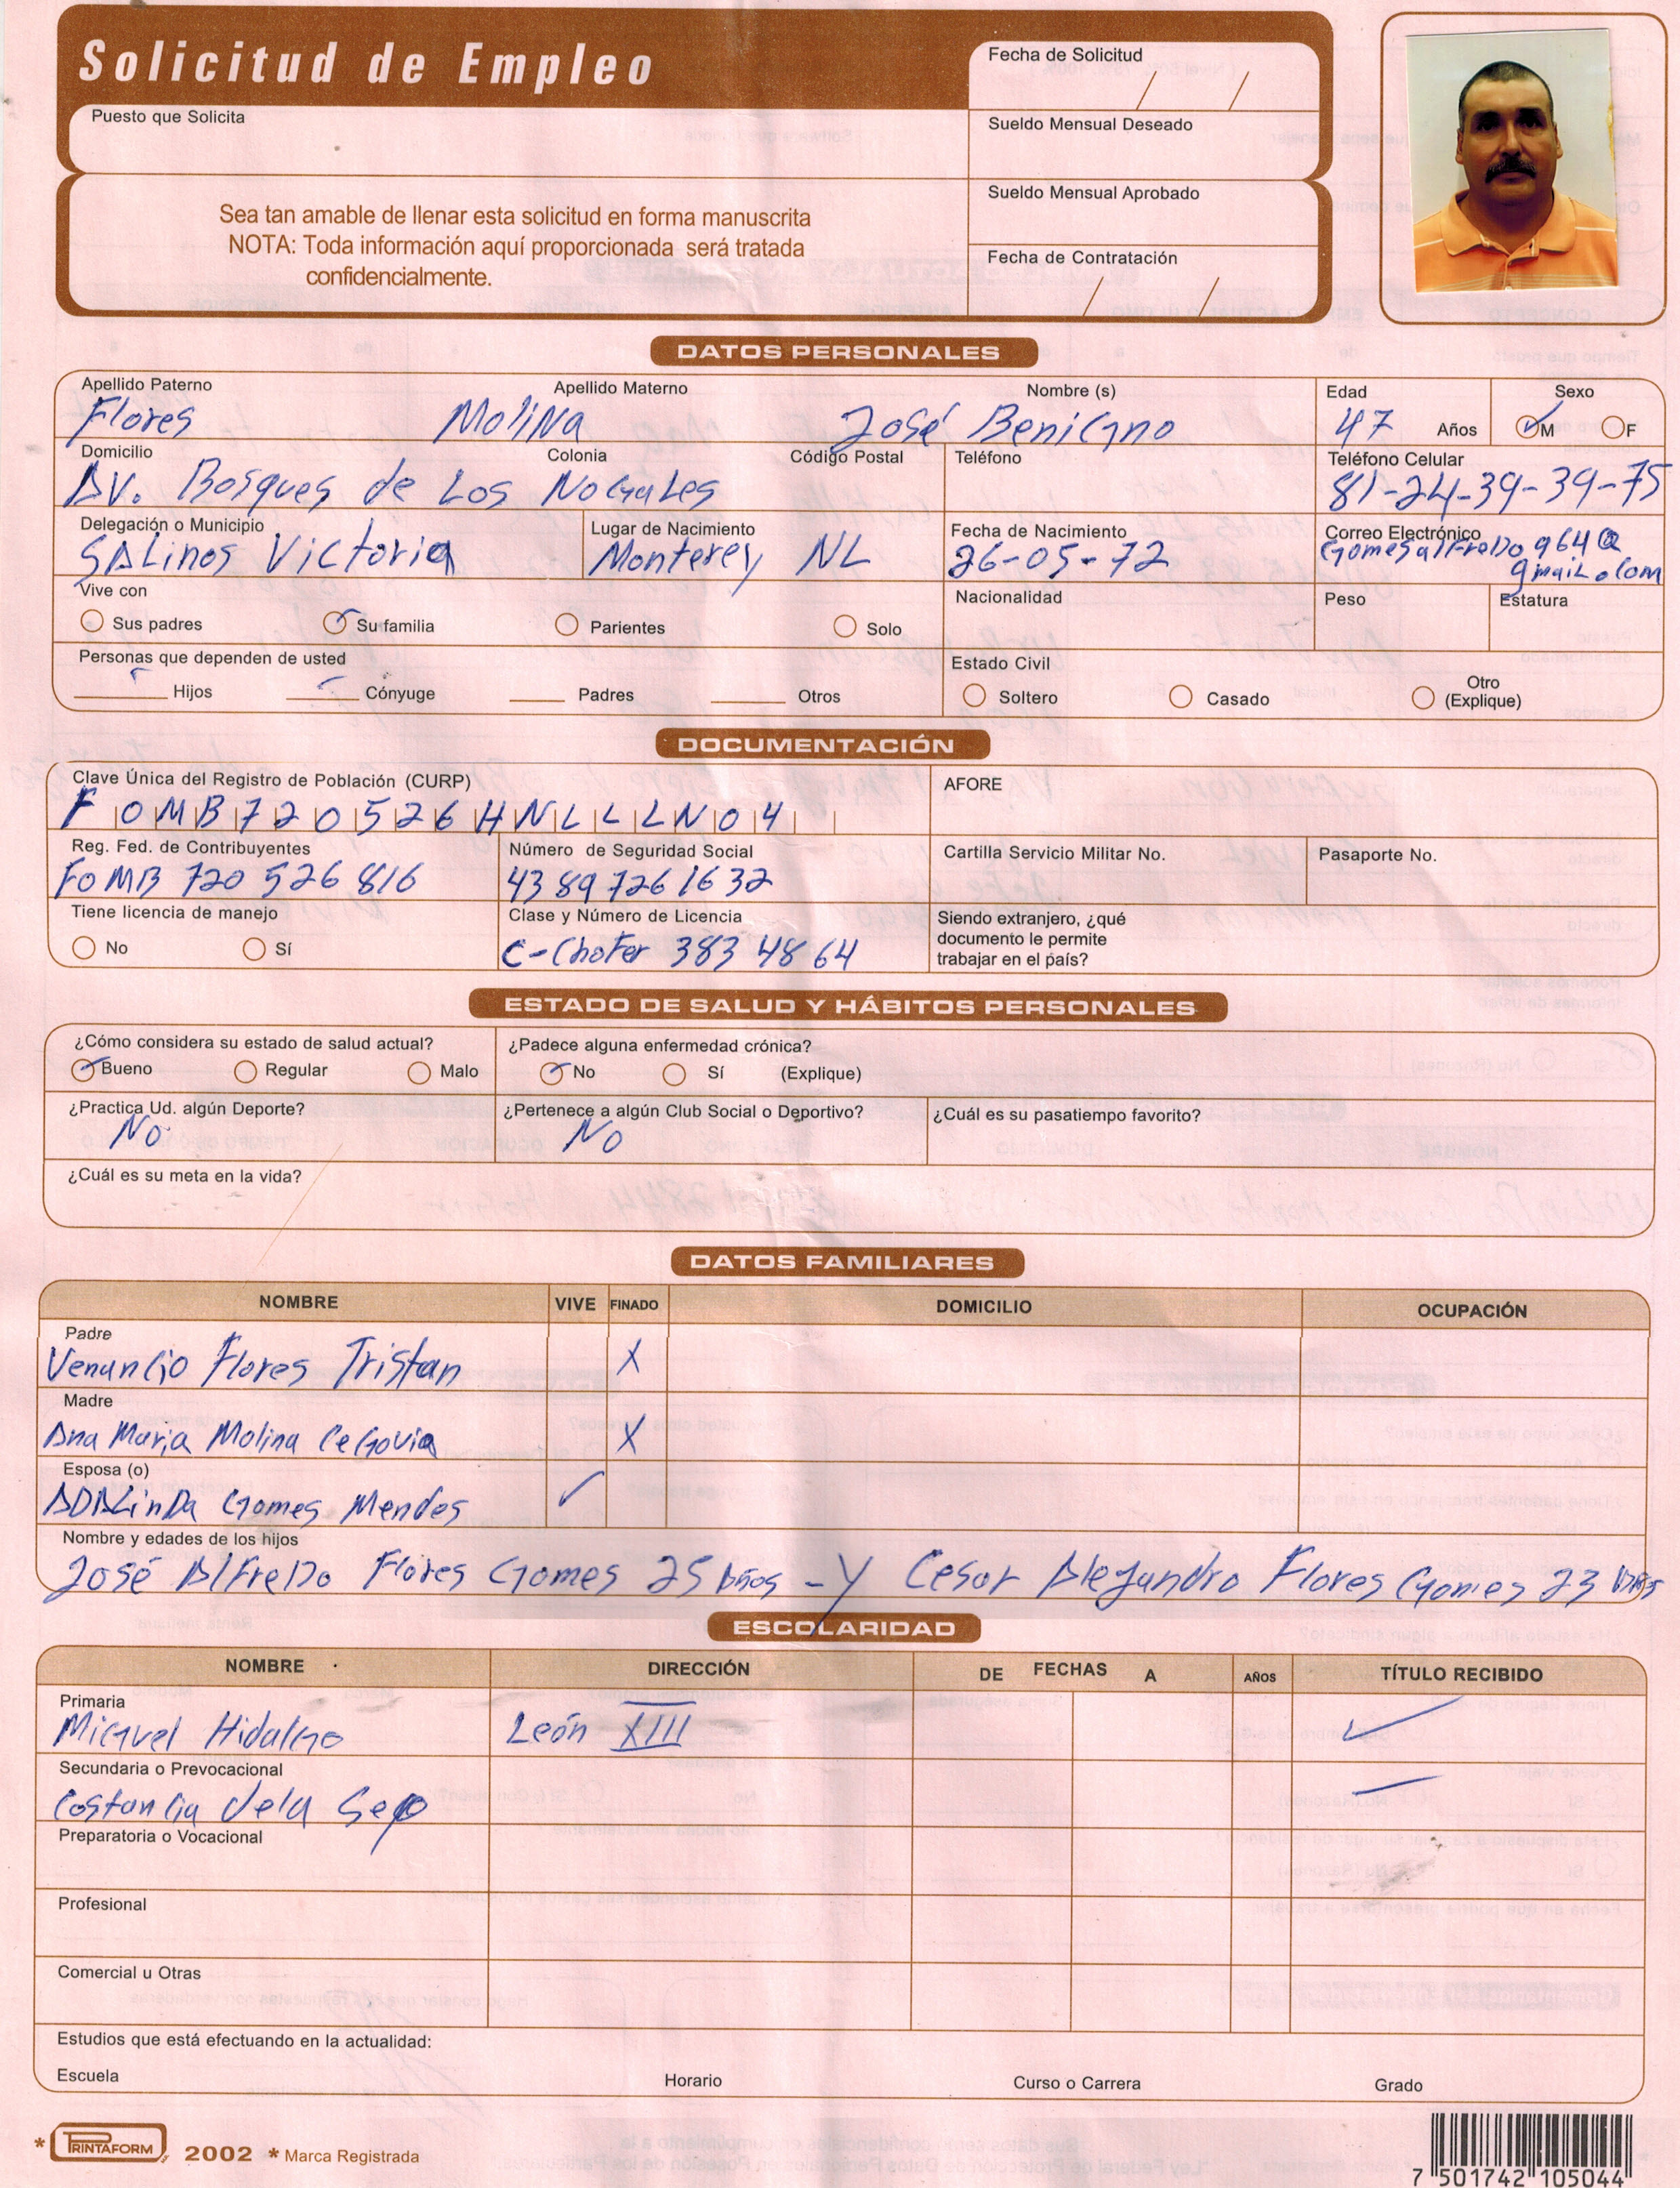 Solicitud de Empleo
Fecha de Solicitud
/ /
Puesto que Solicita
Sueldo Mensual Deseado
Sueldo Mensual Aprobado
Sea tan amable de llenar esta solicitud en forma manuscrita
NOTA: Toda información aquí proporcionada será tratada
confidencialmente.
Fecha de Contratación
/ /
DATOS PERSONALES
Apellido Paterno Apellido Materno Nombre (s) Edad Sexo
Flores Molina José Benigno 47 Años M F
Domicilio Colonia Código Postal Teléfono Teléfono Celular
AV. Bosques de Los Nogales 81-24-39-39-75
Delegación o Municipio Lugar de Nacimiento Fecha de Nacimiento Correo Electrónico
SALinos Victoria Monterey NL 26-05-72 GomesalFreDo964@
gmail.com
Vive con Nacionalidad Peso Estatura
Sus padres Su familia Parientes Solo
Personas que dependen de usted Estado Civil
Hijos Cónyuge Padres Otros Soltero Casado Otro (Explique)
DOCUMENTACIÓN
Clave Única del Registro de Población (CURP) AFORE
FOMB720526HNLLLN04
Reg. Fed. de Contribuyentes Número de Seguridad Social Cartilla Servicio Militar No. Pasaporte No.
FOMB 720 526 816 43 89 726 1632
Tiene licencia de manejo Clase y Número de Licencia Siendo extranjero, ¿qué
documento le permite
trabajar en el país?
No Sí C-Chofer 383 48 64
ESTADO DE SALUD Y HÁBITOS PERSONALES
¿Cómo considera su estado de salud actual? ¿Padece alguna enfermedad crónica?
Bueno Regular Malo No Sí (Explique)
¿Practica Ud. algún Deporte? ¿Pertenece a algún Club Social o Deportivo? ¿Cuál es su pasatiempo favorito?
No No
¿Cuál es su meta en la vida?
DATOS FAMILIARES
NOMBRE VIVE FINADO DOMICILIO OCUPACIÓN
Padre
Venancio Flores Tristan X
Madre
Ana Maria Molina Cegovia X
Esposa (o)
ADALinDa Gomes Mendes ✓
Nombre y edades de los hijos
José AlFreDo Flores Gomes 25 años - Y Cesar Alejandro Flores Gomes 23 años
ESCOLARIDAD
NOMBRE DIRECCIÓN DE FECHAS A AÑOS TÍTULO RECIBIDO
Primaria
Miguel Hidalgo León XIII ✓
Secundaria o Prevocacional
Costancia dela Sep
Preparatoria o Vocacional
Profesional
Comercial u Otras
Estudios que está efectuando en la actualidad:
Escuela Horario Curso o Carrera Grado
* PRINTAFORM 2002 * Marca Registrada
7 501742 105044